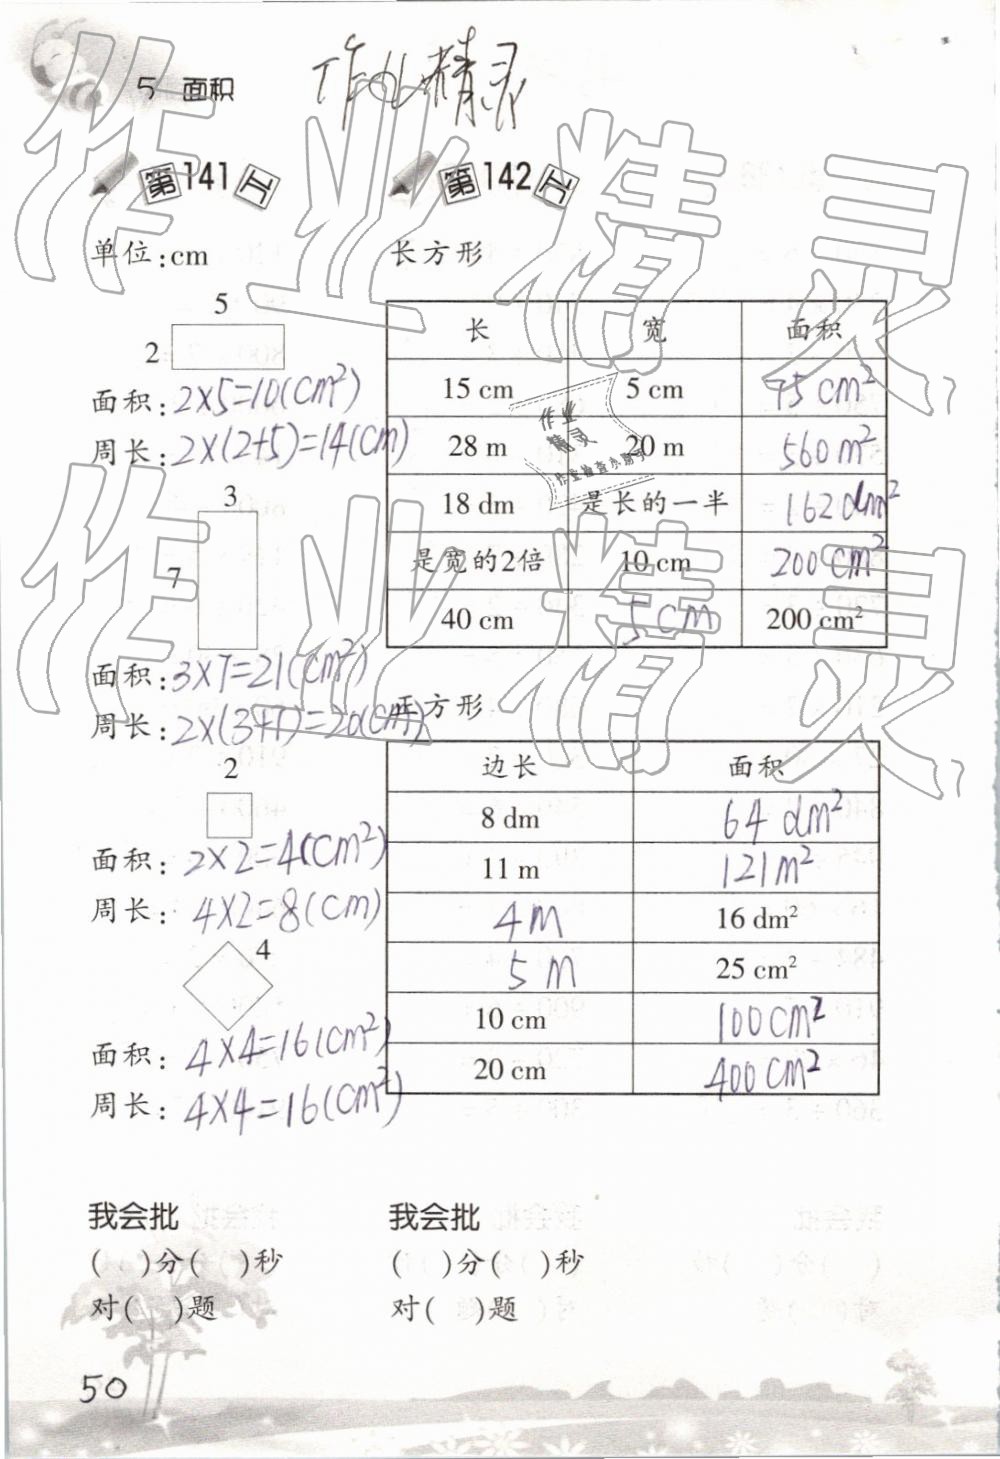 作业精灵
5 面积
第141天
单位:cm
5
2
面积:2×5=10(cm²)
周长:2×(2+5)=14(cm)
3
7
面积:3×7=21(cm²)
周长:2×(3+7)=20(cm)
2
面积:2×2=4(cm²)
周长:4×2=8(cm)
4
面积:4×4=16(cm²)
周长:4×4=16(cm²)
我会批
( )分( )秒
对( )题
第142天
长方形
长 宽 面积
15 cm 5 cm 75 cm²
28 m 20 m 560 m²
18 dm 是长的一半 162 dm²
是宽的2倍 10 cm 200 cm²
40 cm 5 cm 200 cm²
正方形
边长 面积
8 dm 64 dm²
11 m 121 m²
4 m 16 dm²
5 m 25 cm²
10 cm 100 cm²
20 cm 400 cm²
我会批
( )分( )秒
对( )题
50
作业精灵
作业精灵
作业
精灵
作业检查小助手